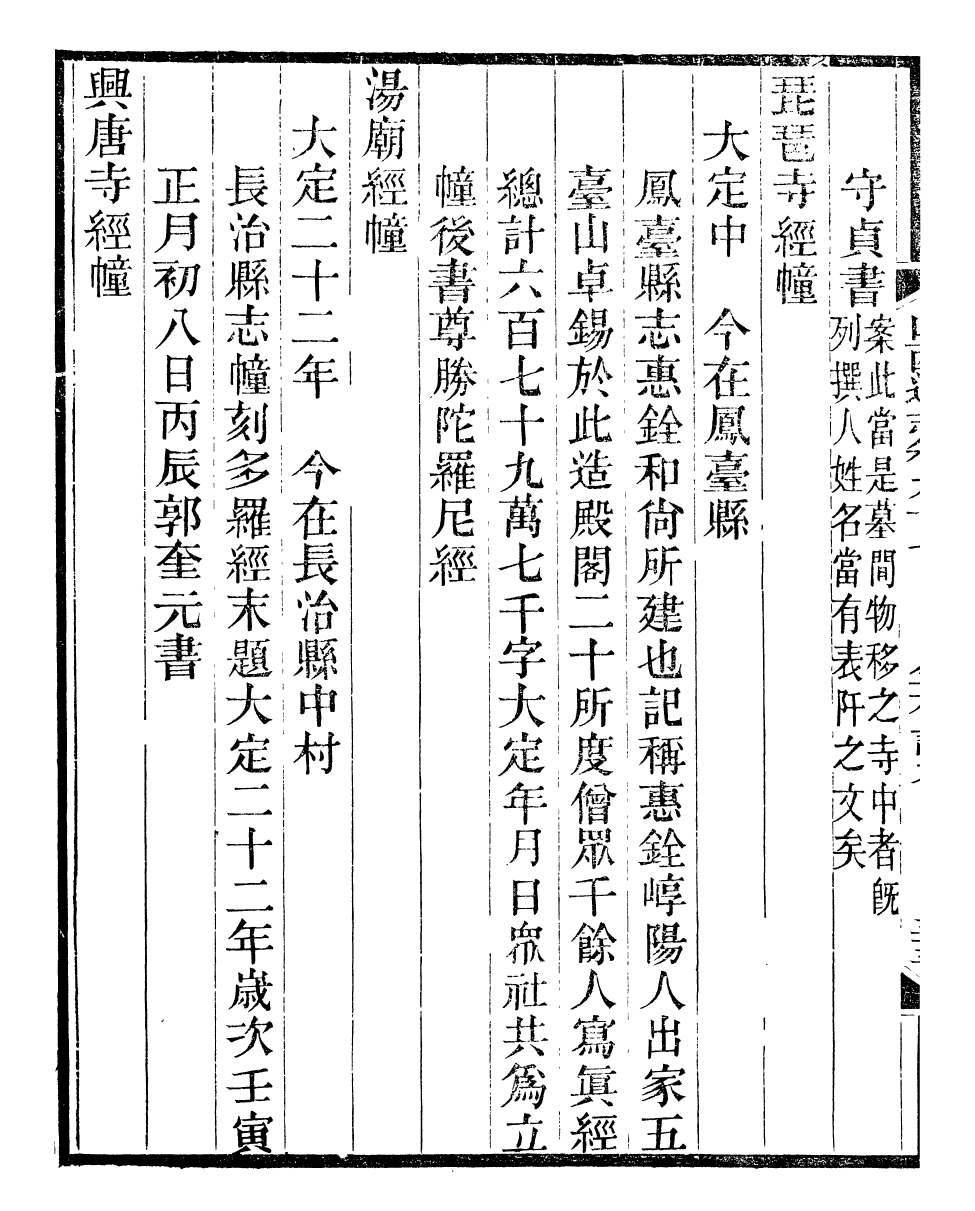 守貞書案此當是墓間物移之寺中者旣
列撰人姓名當有表阡之文矣
琵琶寺經幢
大定中　今在鳳臺縣
鳳臺縣志惠銓和尙所建也記稱惠銓崞陽人出家五
臺山卓錫於此造殿閣二十所度僧眾千餘人寫眞經
總計六百七十九萬七千字大定年月日眾社共爲立
幢後書尊勝陀羅尼經
湯廟經幢
大定二十二年　今在長治縣中村
長治縣志幢刻多羅經末題大定二十二年歲次壬寅
正月初八日丙辰郭奎元書
興唐寺經幢